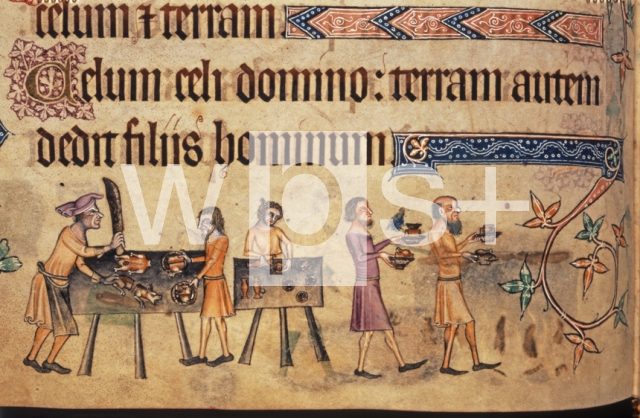 celum ⁊ terram
Celum celi domino : terram autem
dedit filiis hominum
wps+